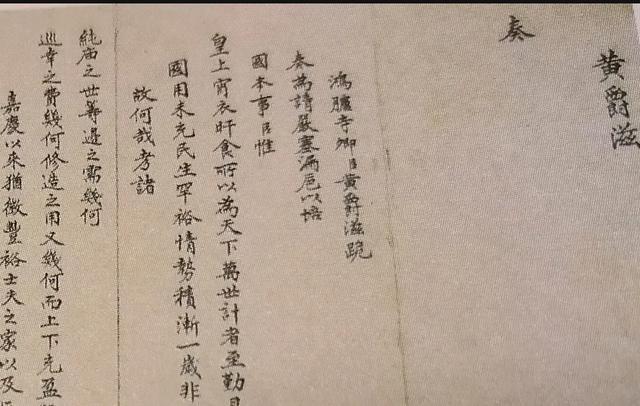 黄爵滋
奏
鴻臚寺卿臣黄爵滋跪
奏為請嚴塞漏卮以培
國本事臣惟
皇上宵衣旰食所以為天下萬世計者至勤且
國用未充民生罕裕情勢積漸一歲非
故何哉考諸
純庙之世籌邊之需幾何
巡幸之費幾何修造之用又幾何而上下充盈
嘉慶以來猶徵豐裕士夫之家以及